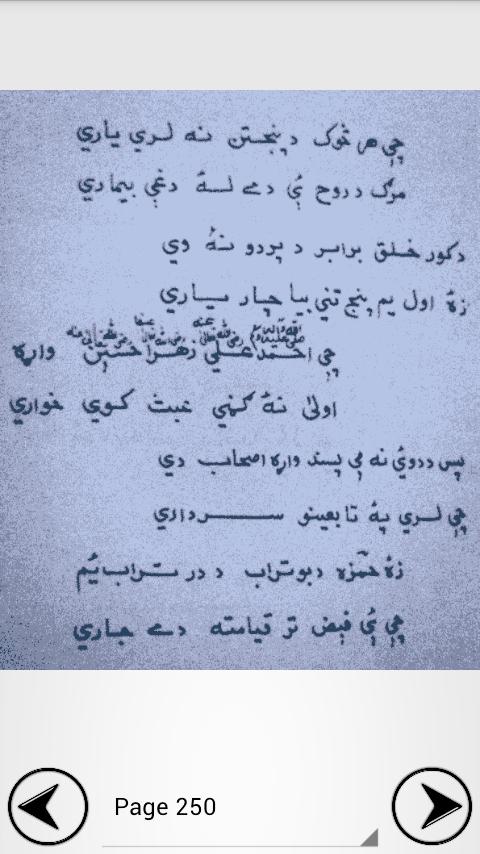 چي هر څوک د پنجتن نه لري ياري
مرګ د روح ئې دے له دغې بيماري
د کور خلق برابر د پردو نۀ وي
زۀ اول يم پنج تني بيا چار ياري
چې احمد علي زهرا حسنين واړه
اولیٰ نۀ ګڼي عبث کوي خواري
پس د دوي نه مې پسند واړه اصحاب دي
چې لري پۀ تابعينو سرداري
زۀ حمزه د بوتراب د در تراب يم
چې ئې فيض تر قيامته دے جاري
Page 250